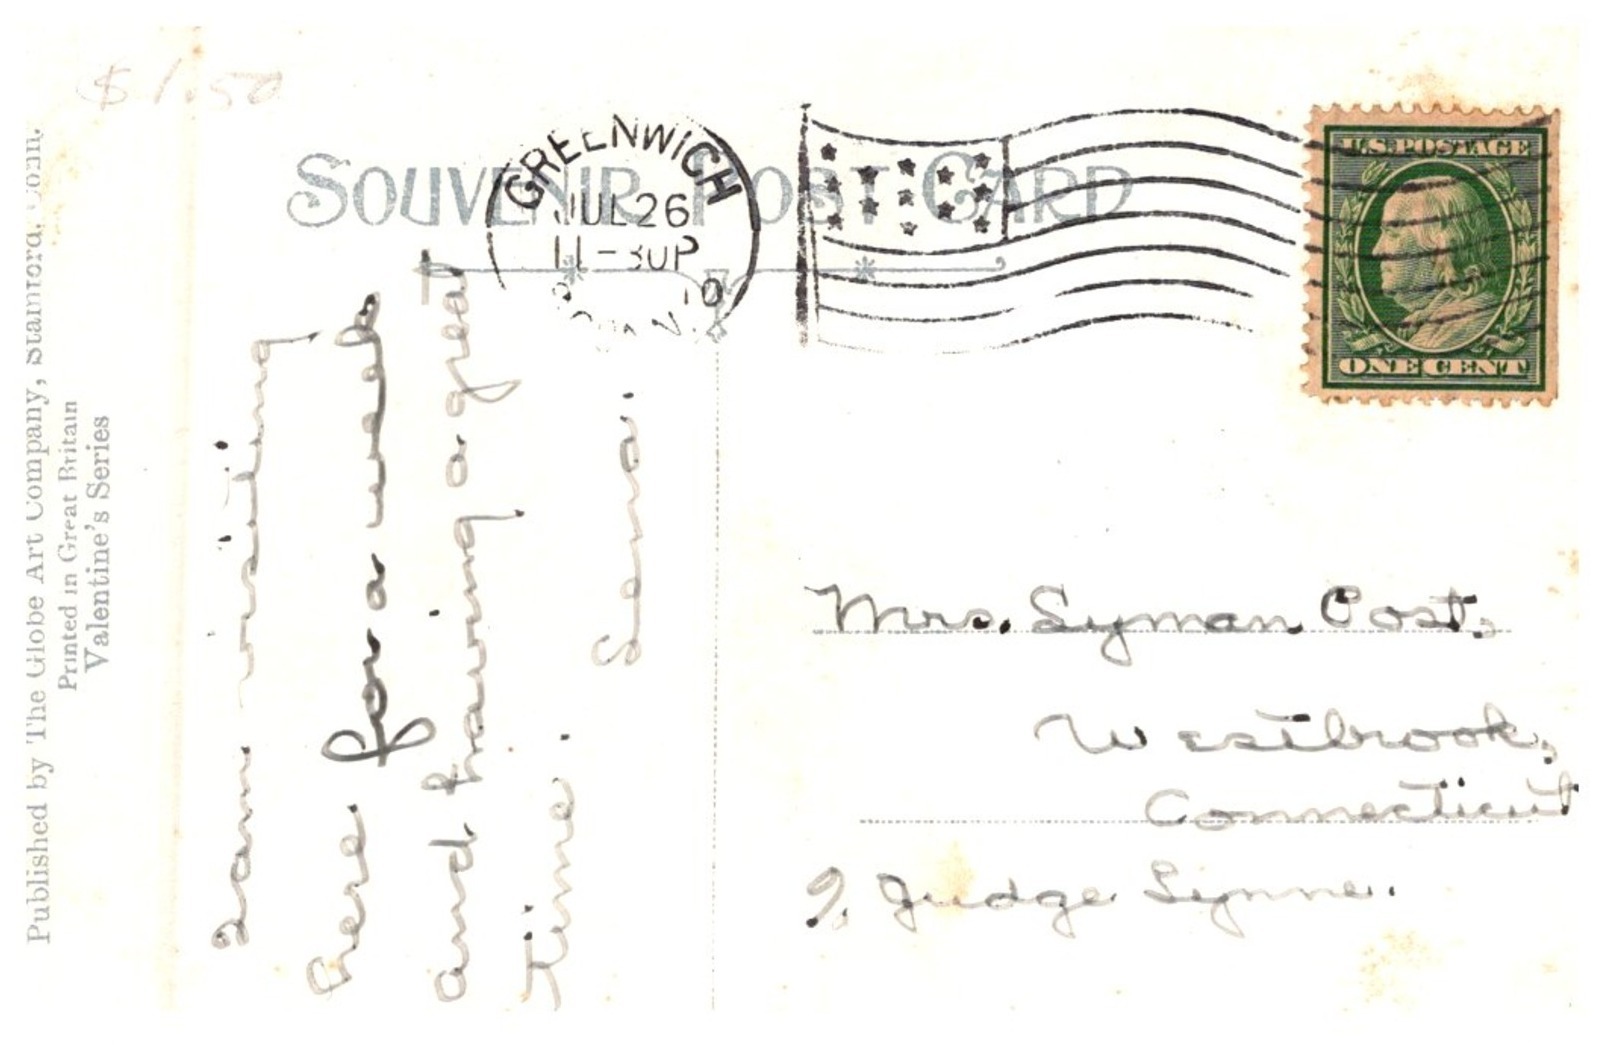 $1.50
SOUVENIR POST CARD
GREENWICH
JUL 26
11-30P
CONN.
10
U.S. POSTAGE
ONE CENT
Published by The Globe Art Company, Stamford, Conn.
Printed in Great Britain
Valentine's Series
I am visiting
here for a week
and having a great
time.
Lena.
Mrs. Lyman Post,
Westbrook,
Connecticut
% Judge Lynne.